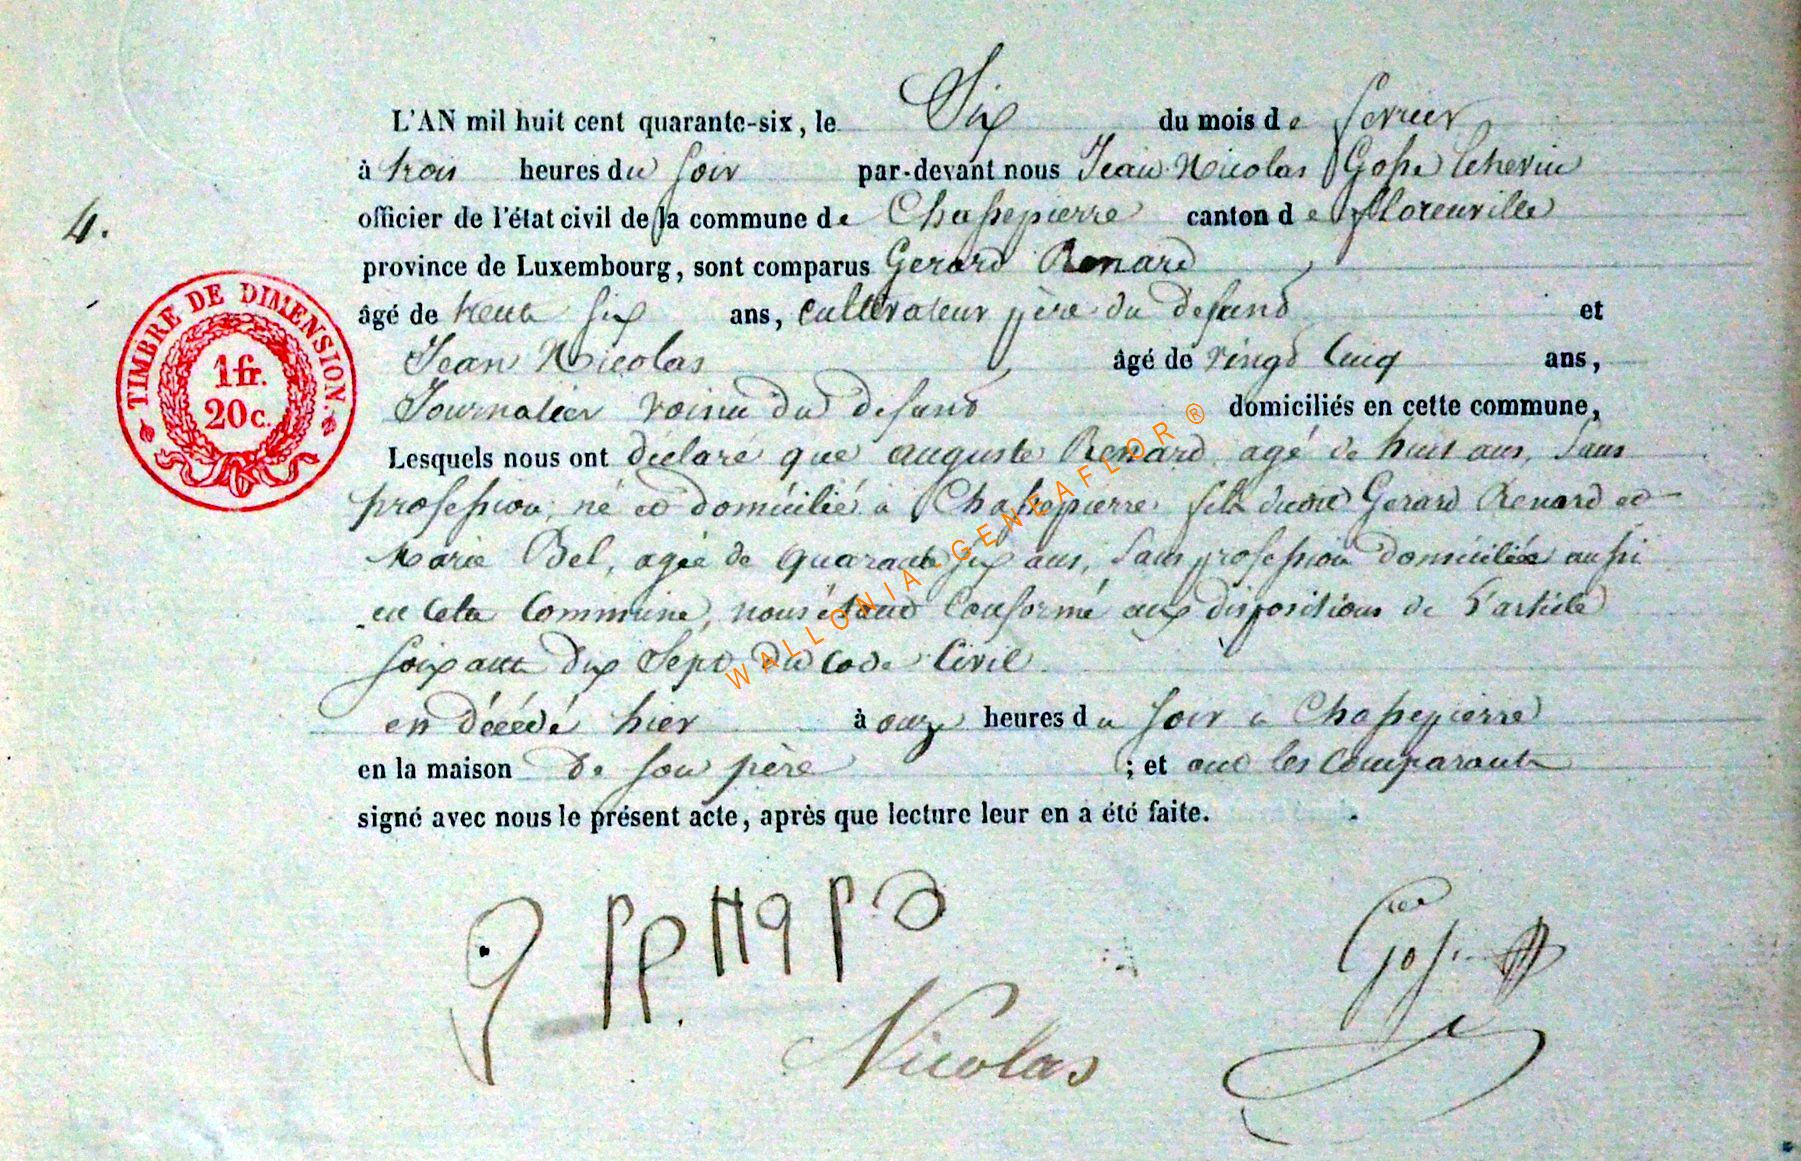 L'AN mil huit cent quarante-six, le Six du mois de fevrier
à trois heures du soir par-devant nous Jean Nicolas Gosse Echevin
officier de l'état civil de la commune de Chassepierre canton de florenville
province de Luxembourg, sont comparus Gerard Renard
4.
âgé de trente six ans, cultivateur père du defund et
Jean Nicolas âgé de vingt Cinq ans,
Journalier voisin du defund domiciliés en cette commune,
Lesquels nous ont déclaré que auguste Renard agé de huit ans, Sans
profession, né et domicilié a Chassepierre fils dudit Gerard Renard et
Marie Bel, agée de quarante six ans, Sans profession domiciliée aussi
en Cette Commune, nous étant Conformé aux dispositions de l'article
soixante dix Sept du code Civil
en décédé hier à onze heures du soir a Chassepierre
en la maison de son père ; et ont les Comparants
signé avec nous le présent acte, après que lecture leur en a été faite.
TIMBRE DE DIMENSION.
1 fr.
20 c.
WALLONIA-GENEAFLOR ®
g renard
Nicolas